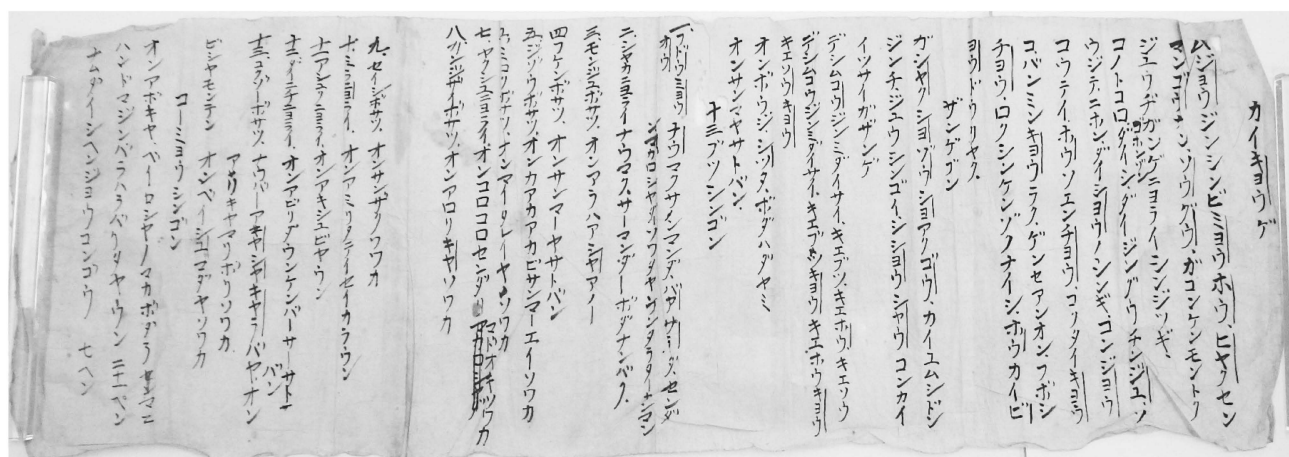 カイキョウゲ
ムジョウジンシンビミョウホウ、ヒヤクセン
マンゴウナンソウグウ、ガコンケンモントク
ジユウヂガンゲニョライシンジツギ、
コノトコロ ダイシ、ダイジングウチンジユ、ソ
ウジテ、ニホン、ダイショウノシンギ、コンジョウ
コウテイ、ホウソエンチョウ、コクタイキョウ
コ、バンミンキョウラク、ゲンセアンオン、フボシ
チョウ、ロクシンケンゾク、ナイシ、ホウカイビ
ヨウドウリヤク、
ザンゲゴン
ガシヤクショゾウショアクゴウ、カイユムシドン
ジンチ、ジユウシンゴイ、シショウシヤウ コンカイ
イツサイガザンゲ
デシムコウジンミダイサイ、キエブツ、キエホウキエソウ
デシムコウジンミダイサイ、キエブツキョウ キエホウキョウ
キエソウキョウ
オンボウジ、シツタ、ボダハダヤミ
オンサンマヤサトバン、
十三ブツシンゴン
一、フドウミョウオウ ナウマクサンマンダ、バザラダ、センダ
ンマカロシヤダソワタヤ ウンタラタカンマン
二、シヤカニヨライ ナウマク、サーマンダーボダナンバク、
三、モンジユボサツ、オンアラハアシヤアノー
四フケンボサツ、オンサンマーヤサトバン
五、ジゾウボサツ、オンカアカアカビサンマーエイソワカ
六、ミロクボサツ、オンマイタレイヤ、ソワカ
七、ヤクシユニヨライ、オンコロコロセンダ マトオキソワカ
八、カンゼヲボサツ、オンアロリキヤソワカ
九、セイシボサツ、オンサンザンサクソワカ
十、ミダニヨライ、オンアミリタテイセイカラウン
十一アシユクニヨライ、オンアキシユビヤウン
十二、ダイニチニヨライ、オンアビラウンケンバーサーサトー
バン
十三、コクゾーボサツ、ナウバーアキヤシヤキヤラバヤ、オン
アリキヤマリボリソワカ
ビシヤモンテン オンベイシラマダヤソワカ
コーミヨウシンゴン
オンアボキヤ、ベイーロシヤノマカボダラ マニ
ハンドマジンバラハラベリタヤウン 二十一ペン
ナムダイシヘンジョウコンゴウ 七ヘン